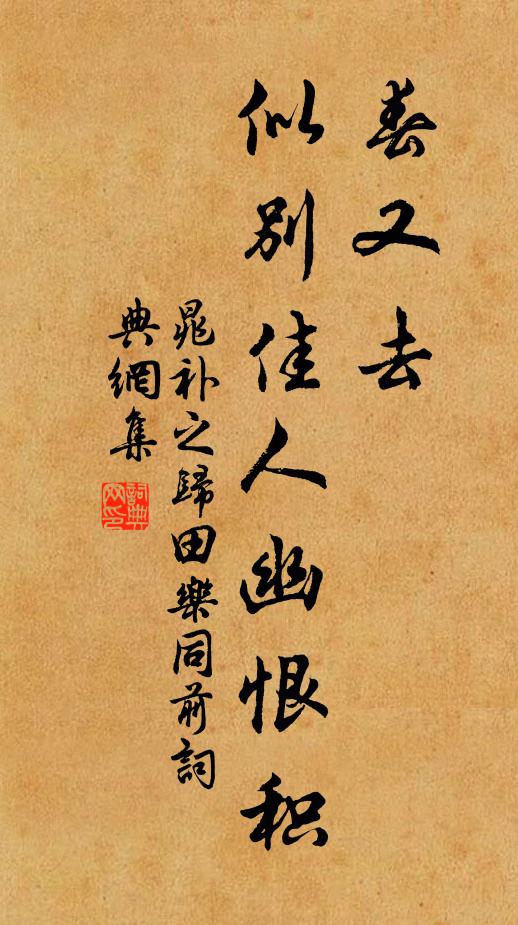 春又去
似别佳人幽恨积
晁补之歸田樂同前詞
典網集
詞典
网印